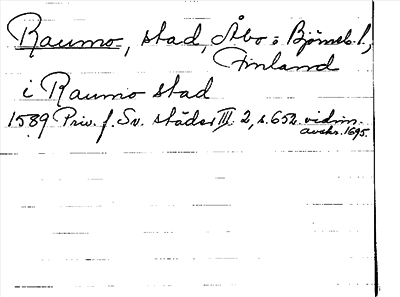 Raumo, stad, Åbo o. Björneb. l.,
Finland
i Raumo stad
1589 Priv. f. Sv. städer III: 2, s. 652. vidim.
avskr. 1695.